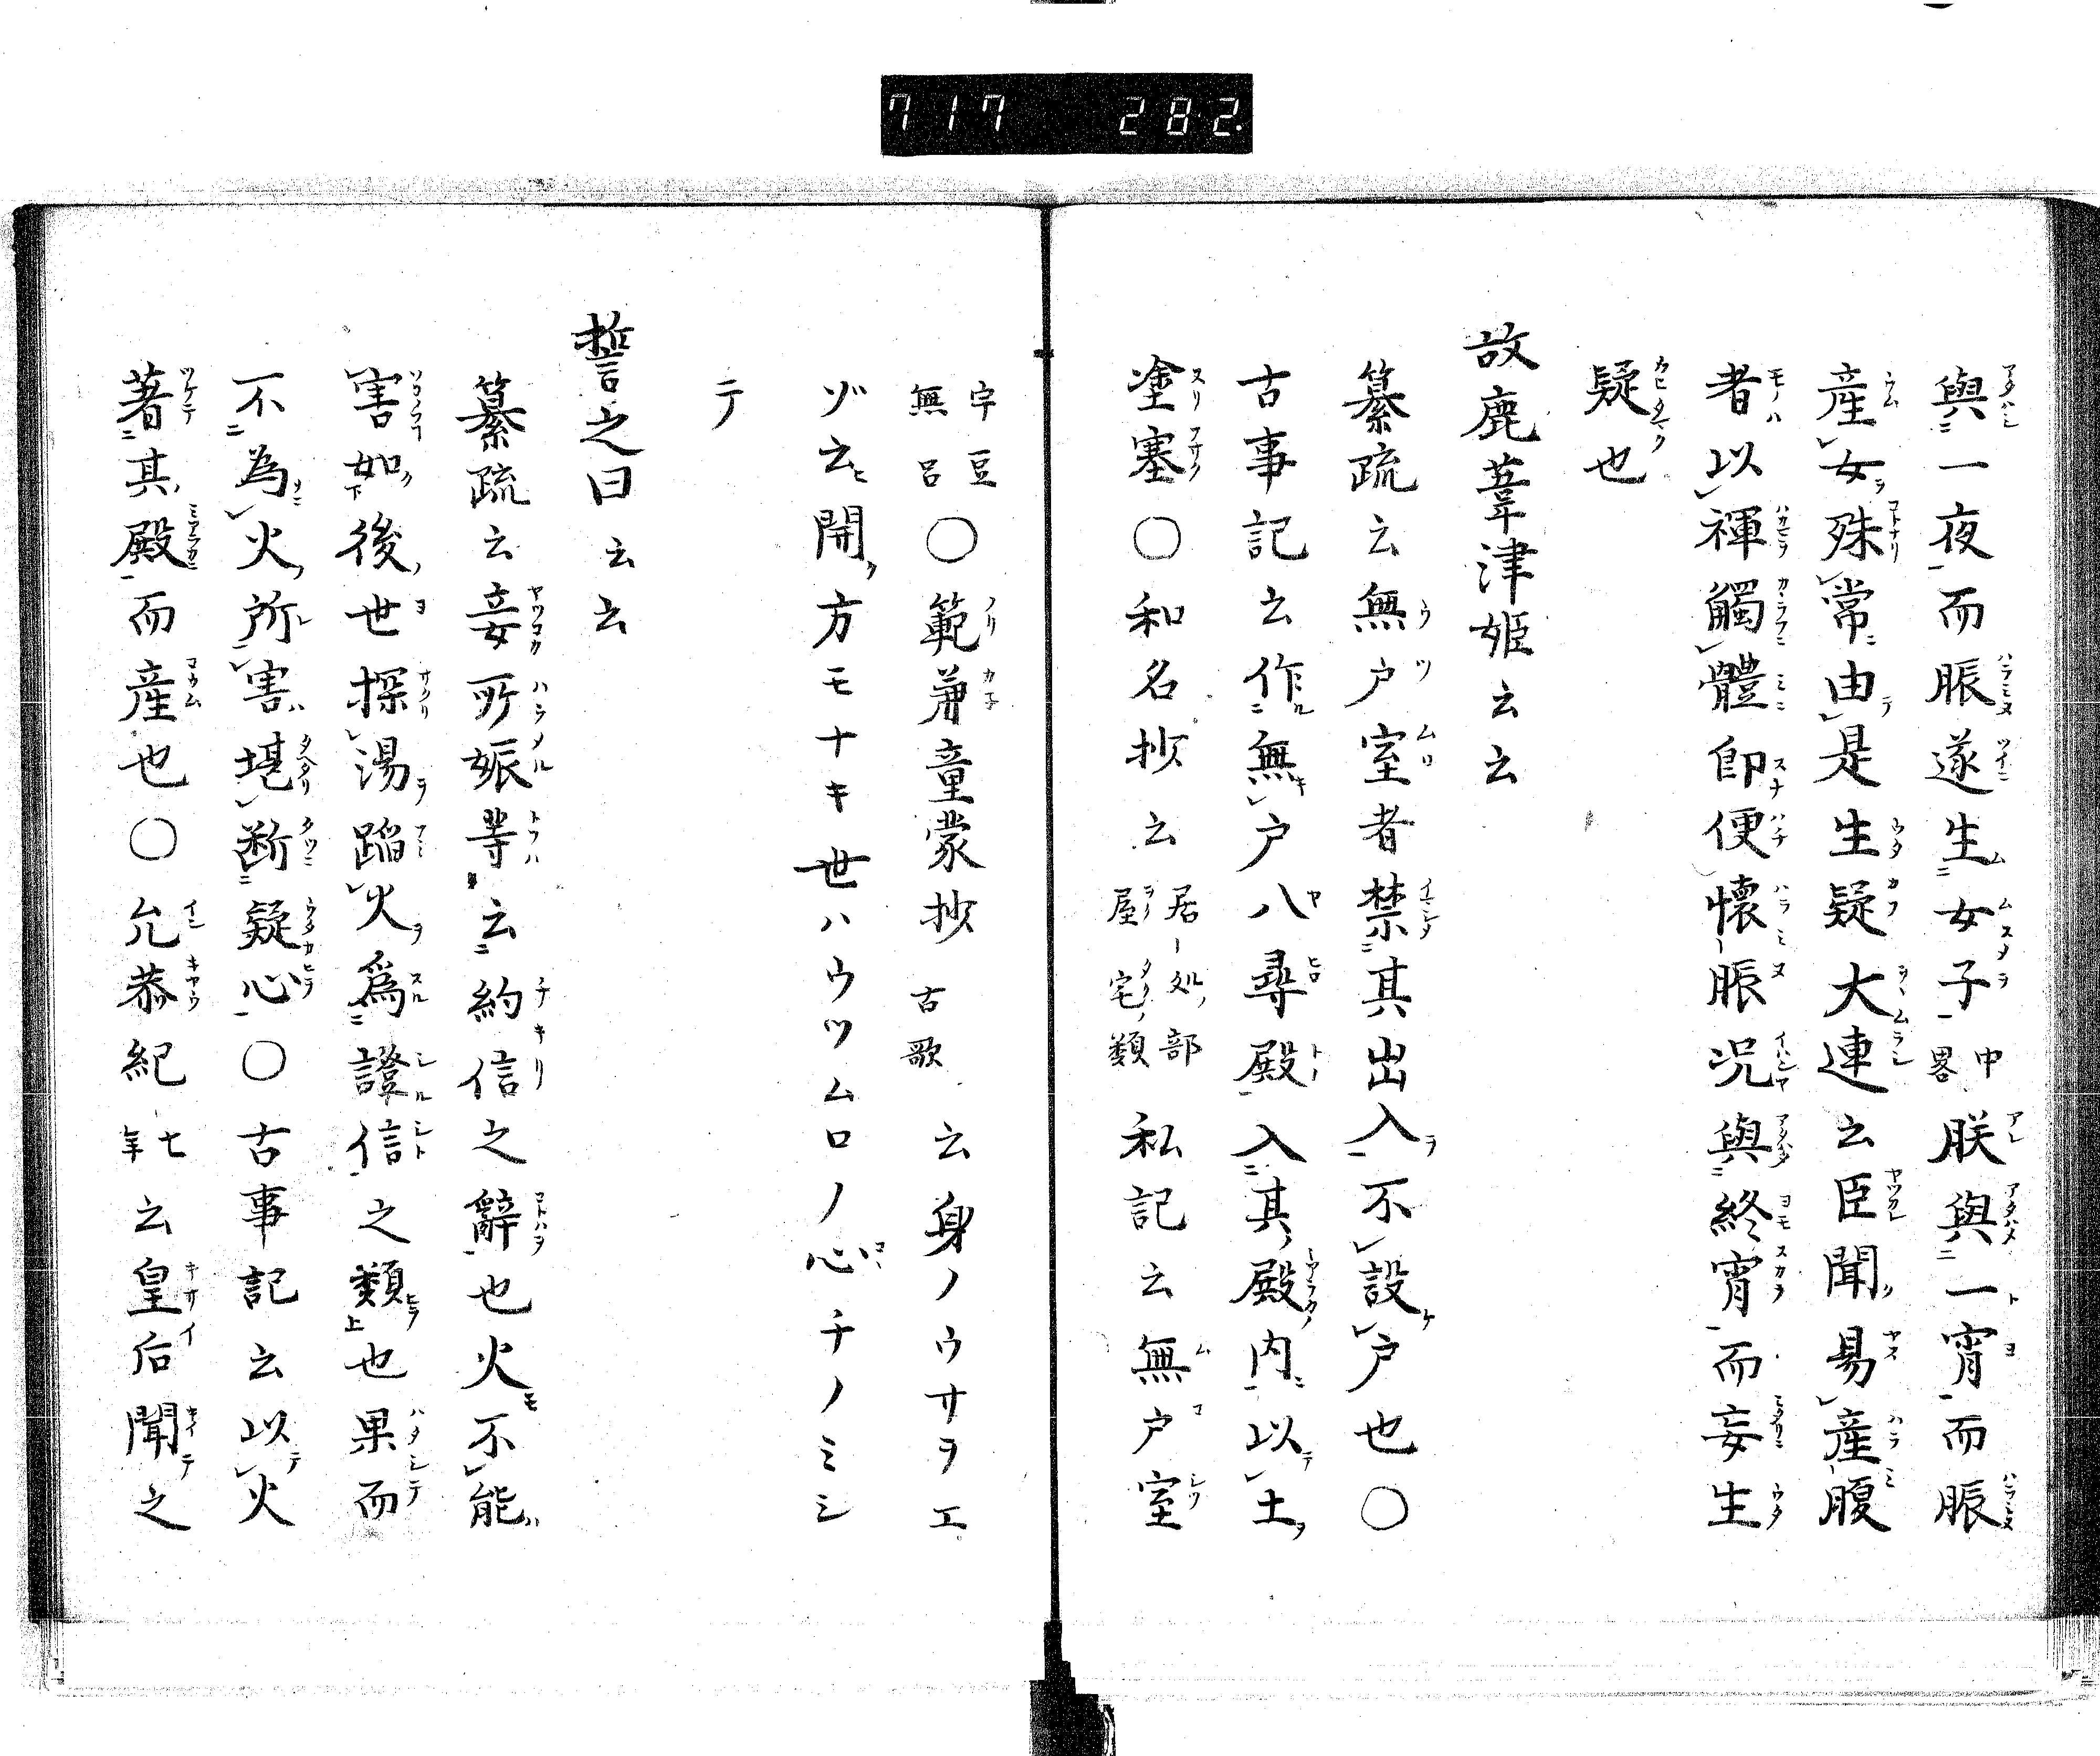 717 282.
與一夜而脤遂生女子中畧朕與一宵而脤
産女殊常由是生疑大連云臣聞易産腹
者以褌觸體即便懷脤況與終宵而妄生
疑也
故鹿葦津姫云云
纂疏云無戸室者禁其出入不設戸也○
古事記云作無戸八尋殿入其殿内以土
塗塞○和名抄云居処部屋宅類私記云無戸室
宇豆無呂○範兼童蒙抄古歌云身ノウサヲエ
ゾ云ヒ開ク方モナキ世ハウツムロノ心チノミシ
テ
誓之曰云云
纂疏云妾所娠等云約信之辭也火不能
害如後世探湯蹈火爲證信之類也果而
不為火所害堪断疑心○古事記云以火
著其殿而産也○允恭紀七年云皇后聞之